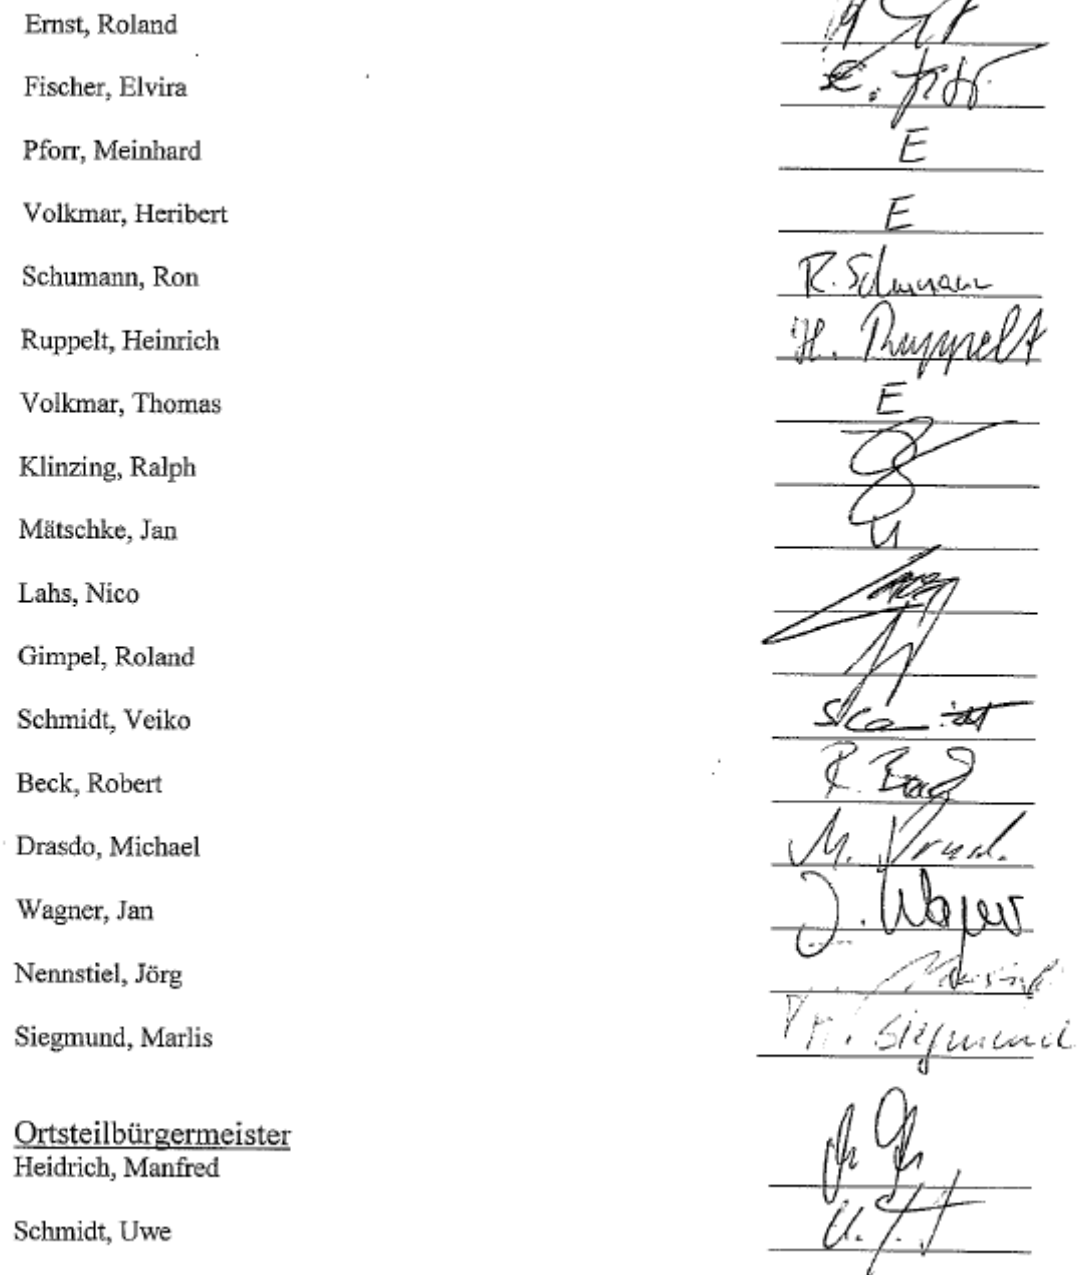 Ernst, Roland
Fischer, Elvira
Pforr, Meinhard E
Volkmar, Heribert E
Schumann, Ron R. Schumann
Ruppelt, Heinrich H. Ruppelt
Volkmar, Thomas E
Klinzing, Ralph
Mätschke, Jan
Lahs, Nico
Gimpel, Roland
Schmidt, Veiko
Beck, Robert R. Beck
Drasdo, Michael M.
Wagner, Jan J. Wagner
Nennstiel, Jörg
Siegmund, Marlis M. Siegmund
Ortsteilbürgermeister
Heidrich, Manfred
Schmidt, Uwe U.